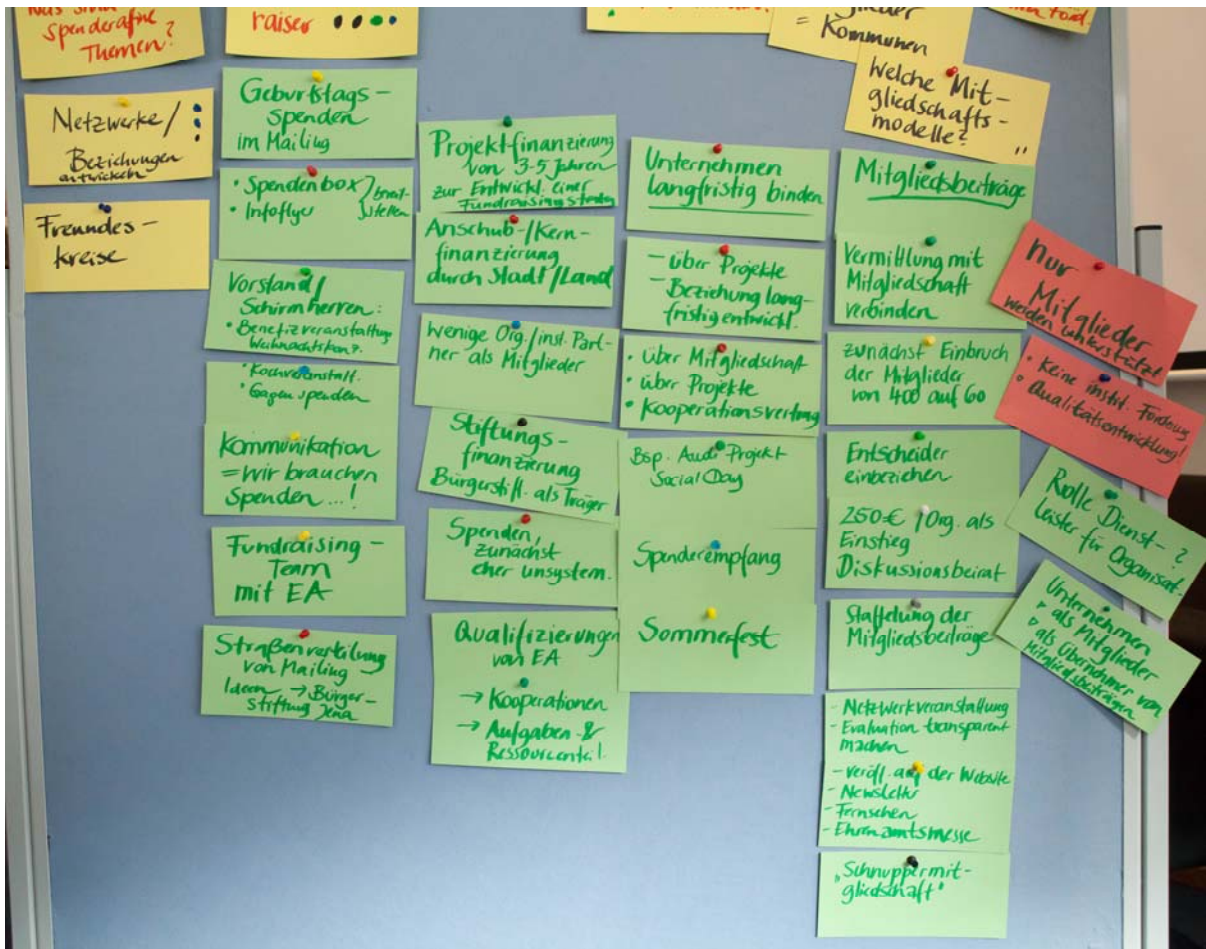 Was sind
Spenderafine
Themen?
Netzwerke/
Beziehungen
entwickeln
Freundes-
kreise
raiser
Geburtstags-
spenden
im Mailing
• Spendenbox
• Infoflyer
} bereit-
stellen
Vorstand/
Schirmherren:
• Benefizveranstaltung
Weihnachtskonz.
• Kochveranstalt.
• Gagen spenden
Kommunikation
= Wir brauchen
Spenden ...!
Fundraising-
Team
mit EA
Straßenverteilung
von Mailing
Ideen → Bürger-
stiftung Jena
Projektfinanzierung
von 3-5 Jahren
zur Entwickl. einer
Fundraising
Anschub-/Kern-
finanzierung
durch Stadt/Land
Wenige Org./inst. Part-
ner als Mitglieder
Stiftungs-
finanzierung
Bürgerstift. als Träger
Spenden,
zunächst
eher unsystem.
Qualifizierungen
von EA
→ Kooperationen
→ Aufgaben- &
Unternehmen
langfristig binden
- über Projekte
- Beziehung lang-
fristig entwickl.
• über Mitgliedschaft
• über Projekte
• Kooperationsvertrag
Bsp. Audi Projekt
Social Day
Spenderempfang
Sommerfest
=
Kommunen
Welche Mit-
gliedschafts-
modelle?
Mitgliedsbeiträge
Vermittlung mit
Mitgliedschaft
verbinden
zunächst Einbruch
der Mitglieder
von 400 auf 60
Entscheider
einbeziehen
250 € / Org. als
Einstieg
Diskussionsbeirat
Staffelung der
Mitgliedsbeiträge
- Netzwerkveranstaltung
- Evaluation transparent
machen
- veröff. auf der Website
- Newsletter
- Fernsehen
- Ehrenamtsmesse
"Schnuppermit-
gliedschaft"
Nur
Mitglieder
werden unterstützt
• Keine instit. Förderung
• Qualitätsentwicklung!
Rolle Dienst- ?
leister für Organisat.
Unternehmen
▹ als Mitglieder
▹ als Übernehmer von
Mitgliedsbeiträgen